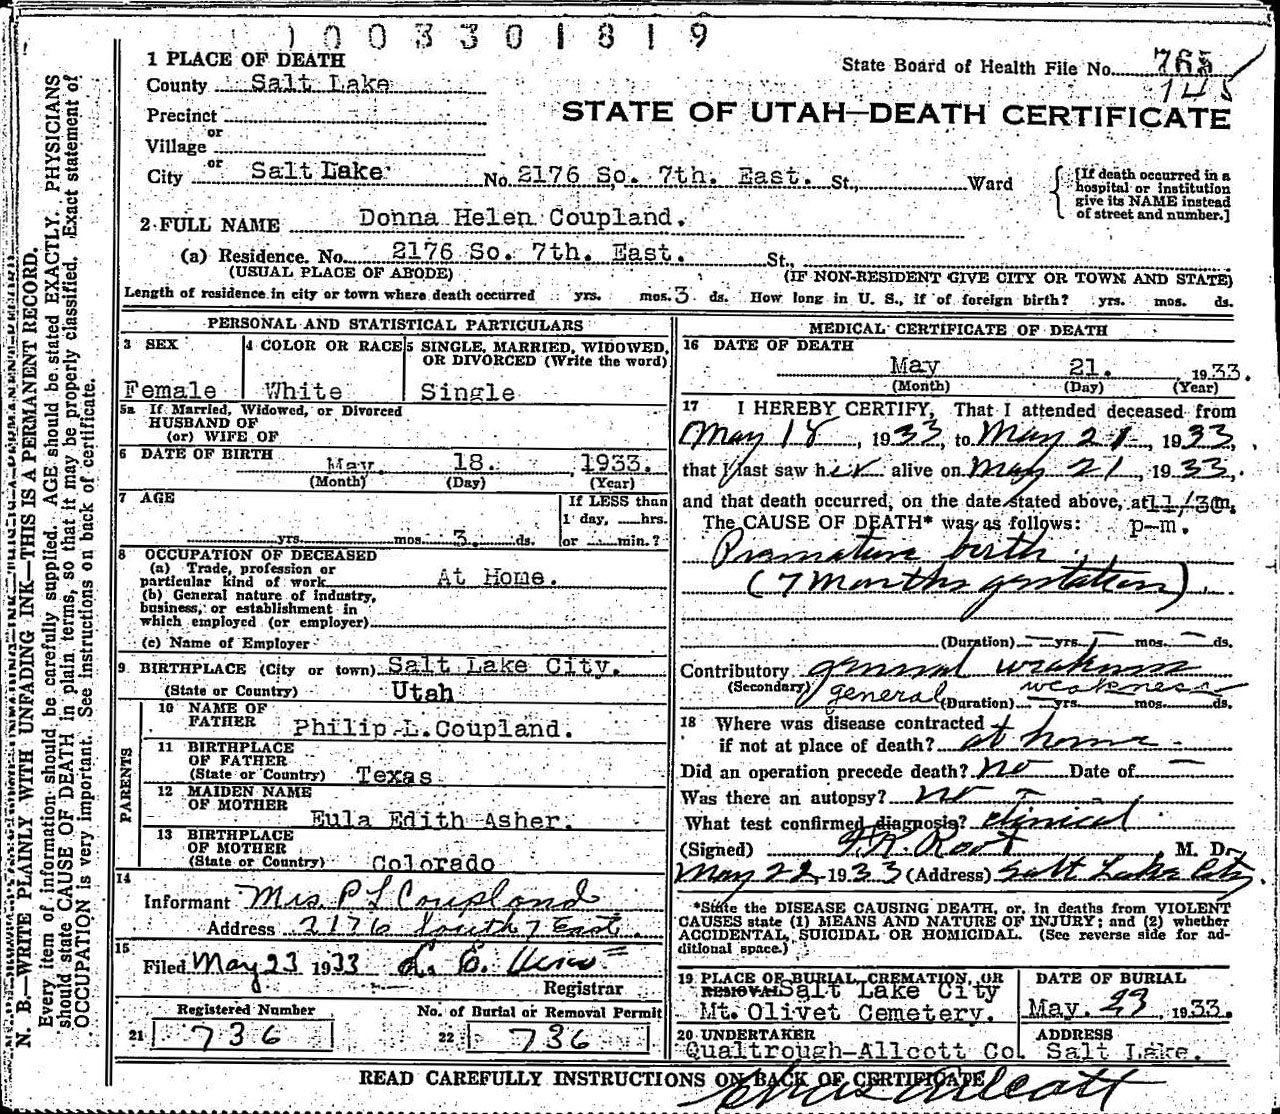 1003301819
1 PLACE OF DEATH
State Board of Health File No. 765
145
County Salt Lake
STATE OF UTAH—DEATH CERTIFICATE
Precinct
or
Village
or
City Salt Lake No. 2176 So. 7th. East. St., Ward
[If death occurred in a
hospital or institution
give its NAME instead
of street and number.]
2 FULL NAME Donna Helen Coupland.
(a) Residence. No. 2176 So. 7th. East. St.,
(USUAL PLACE OF ABODE) (IF NON-RESIDENT GIVE CITY OR TOWN AND STATE)
Length of residence in city or town where death occurred yrs. mos. 3 ds. How long in U. S., if of foreign birth? yrs. mos. ds.
N. B.—WRITE PLAINLY WITH UNFADING INK—THIS IS A PERMANENT RECORD.
Every item of information should be carefully supplied. AGE should be stated EXACTLY. PHYSICIANS
should state CAUSE OF DEATH in plain terms, so that it may be properly classified. Exact statement of
OCCUPATION is very important. See instructions on back of certificate.
PERSONAL AND STATISTICAL PARTICULARS
3 SEX
Female
4 COLOR OR RACE
White
5 SINGLE, MARRIED, WIDOWED,
OR DIVORCED (Write the word)
Single
5a If Married, Widowed, or Divorced
HUSBAND OF
(or) WIFE OF
6 DATE OF BIRTH May. 18. 1933.
(Month) (Day) (Year)
7 AGE
yrs. mos. 3. ds.
If LESS than
1 day, hrs.
or min.?
8 OCCUPATION OF DECEASED
(a) Trade, profession or
particular kind of work At Home.
(b) General nature of industry,
business, or establishment in
which employed (or employer)
(c) Name of Employer
9 BIRTHPLACE (City or town) Salt Lake City.
(State or Country) Utah
PARENTS
10 NAME OF
FATHER Philip L. Coupland.
11 BIRTHPLACE
OF FATHER
(State or Country) Texas
12 MAIDEN NAME
OF MOTHER
Eula Edith Asher.
13 BIRTHPLACE
OF MOTHER
(State or Country) Colorado
14
Informant Mrs P L Coupland
Address 2176 South 7 East
15
Filed May 23 1933
Registrar
Registered Number
21 736
No. of Burial or Removal Permit
22 736
MEDICAL CERTIFICATE OF DEATH
16 DATE OF DEATH
May 21. 1933.
(Month) (Day) (Year)
17 I HEREBY CERTIFY, That I attended deceased from
May 18, 1933, to May 21, 1933,
that I last saw her alive on May 21, 1933.
and that death occurred, on the date stated above, at 11/30 m.
The CAUSE OF DEATH* was as follows: p-m.
Premature birth.
(7 months gestation)
(Duration) yrs. mos. ds.
Contributory general weakness
(Secondary) general weakness
(Duration) yrs. mos. ds.
18 Where was disease contracted
if not at place of death? at home
Did an operation precede death? no Date of —
Was there an autopsy? no —
What test confirmed diagnosis? clinical
(Signed) F.K. Root M. D.
May 22, 1933 (Address) Salt Lake City.
*State the DISEASE CAUSING DEATH, or, in deaths from VIOLENT
CAUSES state (1) MEANS AND NATURE OF INJURY; and (2) whether
ACCIDENTAL, SUICIDAL OR HOMICIDAL. (See reverse side for ad-
ditional space.)
19 PLACE OF BURIAL, CREMATION, OR
REMOVAL Salt Lake City
Mt. Olivet Cemetery.
DATE OF BURIAL
May. 23, 1933.
20 UNDERTAKER
Qualtrough-Allcott Co.
ADDRESS
Salt Lake.
READ CAREFULLY INSTRUCTIONS ON BACK OF CERTIFICATE